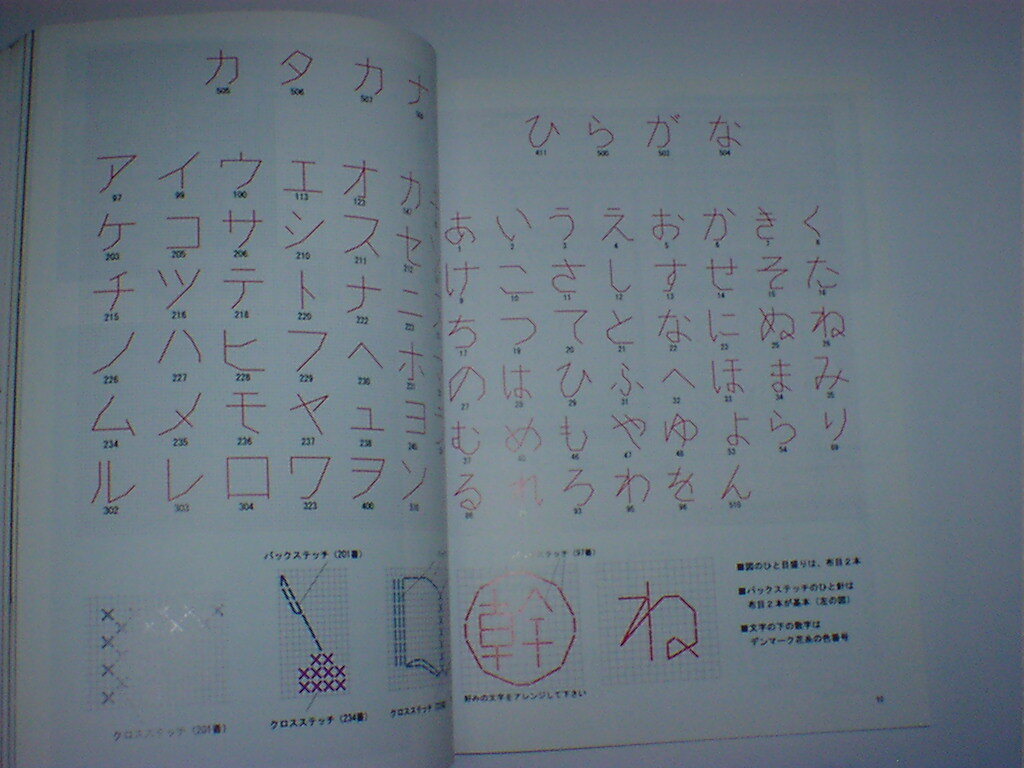 カ タ カ ナ
505 506 507
ア イ ウ エ オ カ
97 99 100 113 123
ケ コ サ シ ス セ
203 205 206 210 211 212
チ ツ テ ト ナ ニ
215 216 218 220 222 223
ノ ハ ヒ フ ヘ ホ
226 227 228 229 230 231
ム メ モ ヤ ュ ヨ
234 235 236 237 238 240
ル レ ロ ワ ヲ ン
302 303 304 323 400
バックステッチ (201番)
クロスステッチ (201番)
クロスステッチ (234番)
クロスステッチ
ひ ら が な
411 500 503 504
あ い う え お か き く
1 2 3 4 5 6 7 8
け こ さ し す せ そ た
9 10 11 12 13 14 15 16
ち つ て と な に ぬ ね
17 19 20 21 22 23 25 26
の は ひ ふ へ ほ ま み
27 28 29 31 32 33 34 35
む め も や ゆ よ ら り
37 40 46 47 48 53 54 69
る れ ろ わ を ん
93 95 96 510
ステッチ (97番)
幹
ね
好みの文字をアレンジして下さい
■図のひと目盛りは、布目2本
■バックステッチのひと針は
布目2本が基本 (左の図)
■文字の下の数字は
デンマーク花糸の色番号